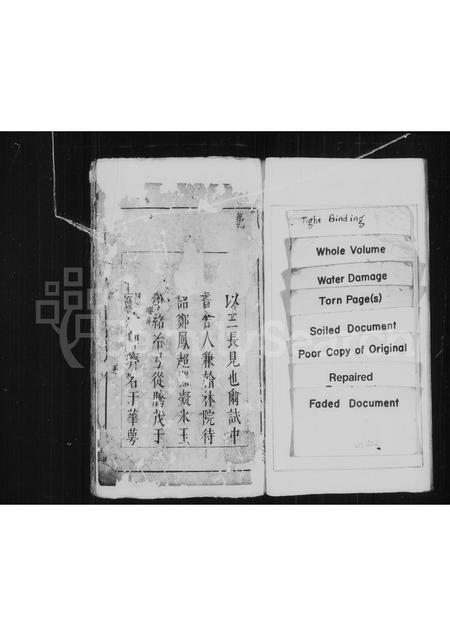 以三長見也爾試中
書舍人兼翰林院待
詔鄭鳳超凝氷玉
緒冶弓從騰茂于
名于華萼
Tight Binding
Whole Volume
Water Damage
Torn Page(s)
Soiled Document
Poor Copy of Original
Repaired
Faded Document